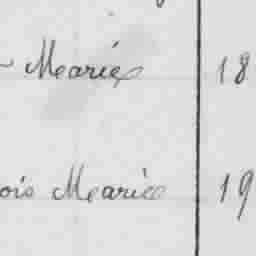 Marie 18
ois Marie 19